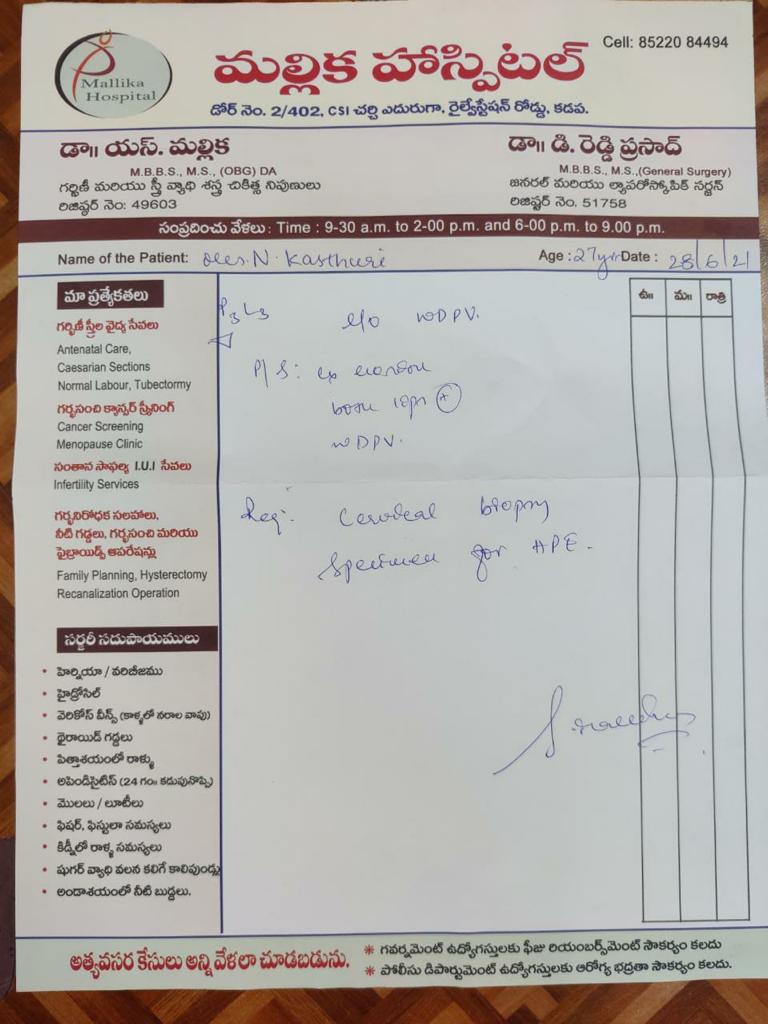 Mallika
Hospital
మల్లిక హాస్పిటల్
Cell: 85220 84494
డోర్ నెం. 2/402, CSI చర్చి ఎదురుగా, రైల్వేస్టేషన్ రోడ్డు, కడప.
డా॥ యస్. మల్లిక
M.B.B.S., M.S., (OBG) DA
గర్భిణీ మరియు స్త్రీ వ్యాధి శస్త్ర చికిత్స నిపుణులు
రిజిష్టర్ నెం: 49603
డా॥ డి. రెడ్డి ప్రసాద్
M.B.B.S., M.S.,(General Surgery)
జనరల్ మరియు ల్యాపరోస్కోపిక్ సర్జన్
రిజిష్టర్ నెం. 51758
సంప్రదించు వేళలు: Time : 9-30 a.m. to 2-00 p.m. and 6-00 p.m. to 9.00 p.m.
Name of the Patient: N. Kasthuri Age : 27yrs Date : 28/6/21
మా ప్రత్యేకతలు
గర్భిణీ స్త్రీల వైద్య సేవలు
Antenatal Care,
Caesarian Sections
Normal Labour, Tubectormy
గర్భసంచి క్యాన్సర్ స్క్రీనింగ్
Cancer Screening
Menopause Clinic
సంతాన సాఫల్య I.U.I సేవలు
Infertility Services
గర్భనిరోధక సలహాలు,
నీటి గడ్డలు, గర్భసంచి మరియు
ఫైబ్రాయిడ్స్ ఆపరేషన్లు
Family Planning, Hysterectomy
Recanalization Operation
సర్జరీ సదుపాయములు
• హెర్నియా / వరిబీజము
• హైడ్రోసిల్
• వెరికోస్ వీన్స్ (కాళ్ళలో నరాల వాపు)
• థైరాయిడ్ గడ్డలు
• పిత్తాశయంలో రాళ్ళు
• అపెండిసైటిస్ (24 గం॥ కడుపునొప్పి)
• మొలలు / లూటీలు
• ఫిషర్, ఫిస్టులా సమస్యలు
• కిడ్నీలో రాళ్ళ సమస్యలు
• షుగర్ వ్యాధి వలన కలిగే కాలిపుండ్లు
• అండాశయంలో నీటి బుడ్డలు.
ఉ॥ మ॥ రాత్రి
P3 L3 c/o WDPV.
P/S: cx erosion
both lips +
WDPV.
Req: Cervical biopsy
Specimen for HPE.
అత్యవసర కేసులు అన్ని వేళలా చూడబడును.
* గవర్నమెంట్ ఉద్యోగస్తులకు ఫీజు రియంబర్స్‌మెంట్ సౌకర్యం కలదు
* పోలీసు డిపార్టుమెంట్ ఉద్యోగస్తులకు ఆరోగ్య భద్రతా సౌకర్యం కలదు.